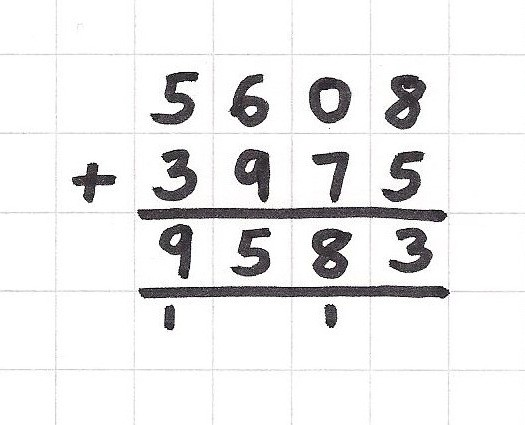 5608
+ 3975
9583
1 1